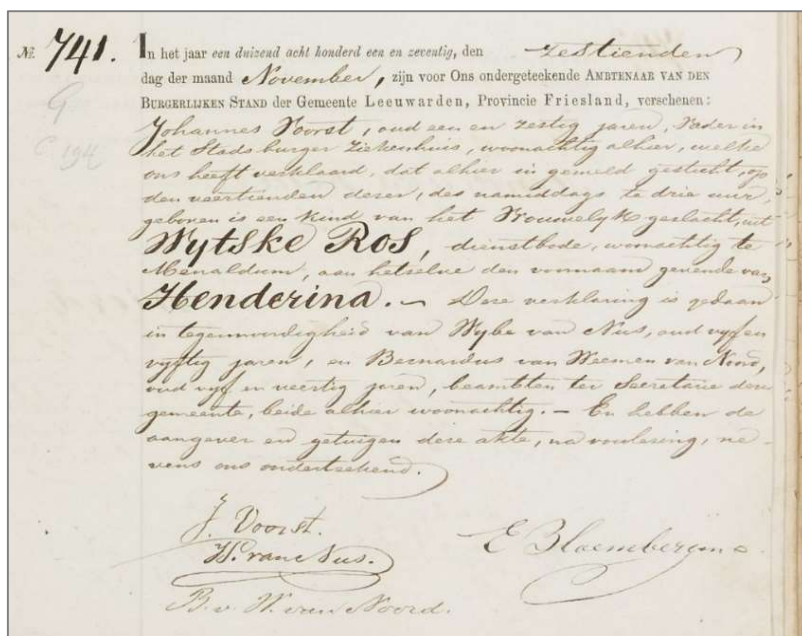 №. 741. In het jaar een duizend acht honderd een en zeventig, den zestienden
dag der maand November, zijn voor Ons ondergeteekende AMBTENAAR VAN DEN
BURGERLIJKEN STAND der Gemeente Leeuwarden, Provincie Friesland, verschenen:
Johannes Voorst, oud een en zestig jaren, Vader in
het Stads burger Ziekenhuis, woonachtig alhier, welke
ons heeft verklaard, dat alhier in gemeld gesticht, op
den veertienden dezer, des namiddags te drie uur,
geboren is een kind van het Vrouwelyk geslacht, uit
Wytske Ros, dienstbode, woonachtig te
Menaldum, aan hetzelve den voornaam gevende van
Henderina. – Deze verklaring is gedaan
in tegenwoordigheid van Wybe van Nus, oud vyf en
vyftig jaren, en Bernardus van Weemen van Noord,
oud vyf en veertig jaren, beambten ter Secretarie dezer
gemeente, beide alhier woonachtig. – En hebben de
aangever en getuigen deze akte, na voorlezing, ne-
vens ons onderteekend.
J. Voorst.
W. van Nus.
E Bloembergen
B. v. W. van Noord.